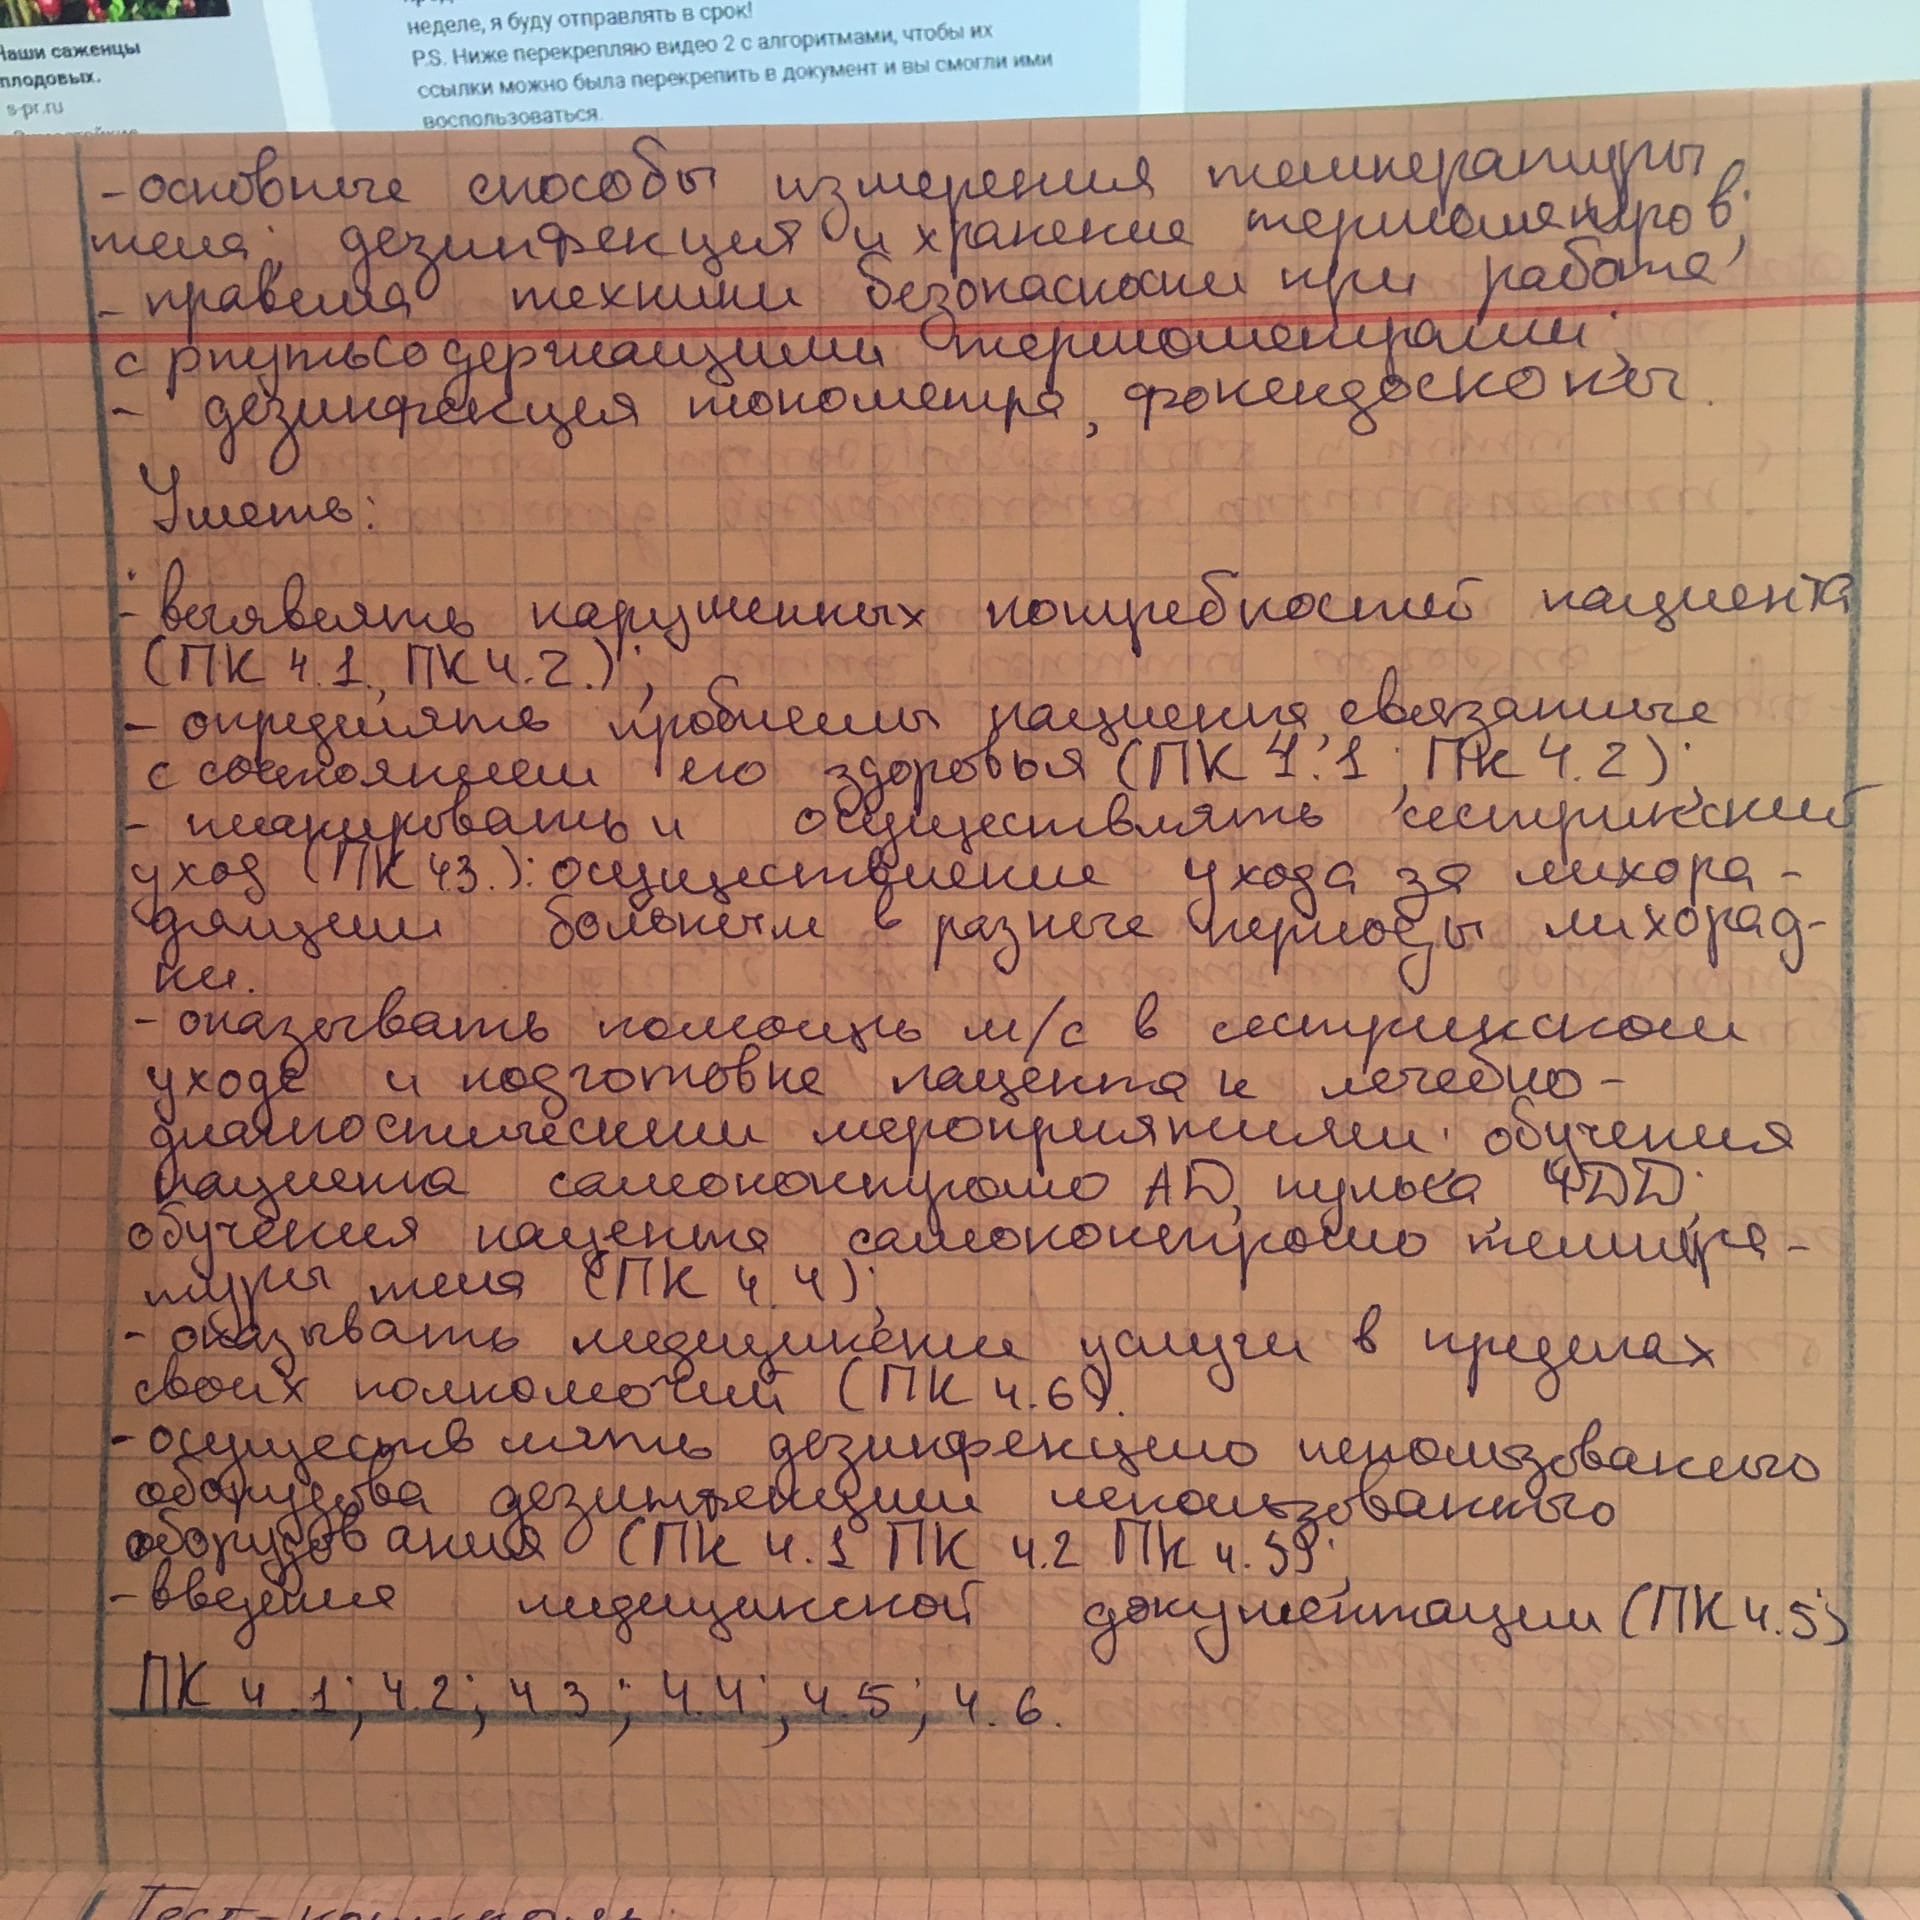 Наши саженцы
плодовых.
s-pr.ru
неделе, я буду отправлять в срок!
P.S. Ниже перекрепляю видео 2 с алгоритмами, чтобы их
ссылки можно была перекрепить в документ и вы смогли ими
воспользоваться.
- основные способы измерения температуры
тела; дезинфекция и хранение термометров;
- правила техники безопасности при работе
с ртутьсодержащими термометрами;
- дезинфекция тонометра, фонендоскопы.
Уметь:
- выявлять нарушенных потребностей пациента
(ПК 4.1., ПК 4.2.);
- определять проблемы пациента, связанные
с состоянием его здоровья (ПК 4.1; ПК 4.2);
- планировать и осуществлять сестринский
уход (ПК 4.3.): осуществление ухода за лихора-
дящим больным в разные периоды лихорад-
ки.
- оказывать помощь м/с в сестринском
уходе и подготовке пацента к лечебно-
диагностическим мероприятиям: обучения
пациента самоконтролю АД, пульса, ЧДД;
обучения пацента самоконтролю темпера-
туры тела (ПК 4.4);
- оказывать медицинские услуги в пределах
своих полномочий (ПК 4.6).
- осуществлять дезинфекцию использованного
оборудова дезинфекции использованного
оборудования (ПК 4.1 ПК 4.2 ПК
- введения медицинской документации (ПК 4.5)
ПК 4.1; 4.2; 4.3; 4.4; 4.5; 4.6.